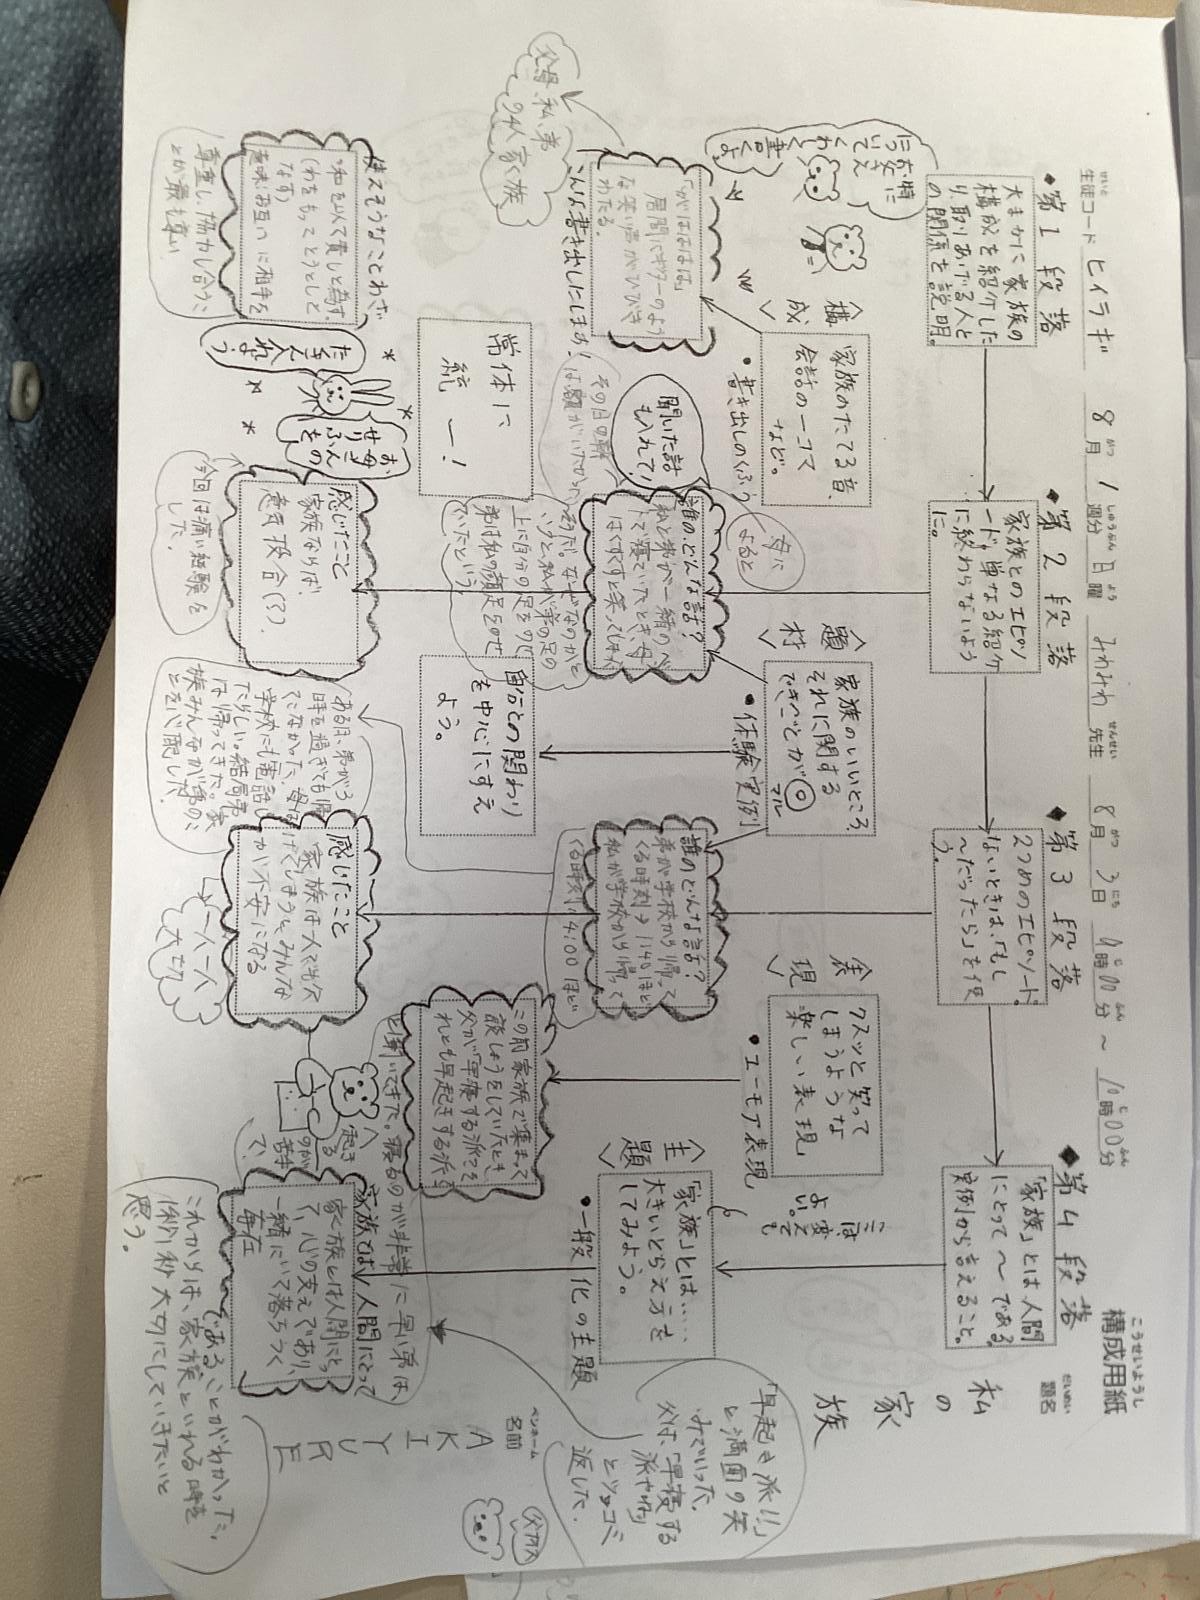 構成用紙
こうせいようし
題名
だいめい
私
の
家
族
ペンネーム
名前
AKIYURE
生徒コード ヒイラギ 8月1週分 日曜 みわみわ先生 8月3日 9時00分〜10時00分
◆第1段落
大まかに家族の
構成を紹介した
り、取りあげる人と
の関係を説明。
◆第2段落
家族とのエピソ
ード。単なる紹介
に終わらないよう
に。
◆第3段落
2つめのエピソード。
ないときは、「もし
〜だったら」を使
う。
◆第4段落
「家族」とは人間
にとって〜である。
実例から言えること。
特に
お笑
について
くわしく
書くよ
〈構成〉
家族のたてる音、
会話の一コマ
など。
・書き出しのくふう
〈題材〉
家族のいいところ、
それに関する
できごとが◎
マル
・体験実例
〈表現〉
クスッと笑って
しまうような
楽しい表現
・ユーモア表現
〈主題〉
「家族」とは……
大きいとらえ方を
してみよう。
・一般化の主題
ここは
変えても
よい。
「がははははは」
居間にギターのよう
な笑い声がひびき
わたる。
こんな書き出しにします!
父、母、私、弟
の4人家族
聞いた話
も入れて!
母に
よると
誰の、どんな話?
私と弟が一緒のベッ
ドで寝ていたとき、母
はくすくすと笑ってしまった
そうだ。なぜなのかと
いうと、私が弟の足の
上に自分の足をのせ
弟は私の顔に足をのせ
ていたという。
その日の朝
は顔がいたかった。
誰のどんな話?
弟が学校から帰って
くる時刻→1:40ほど
私が学校から帰って
くる時刻→4:00ほど
ある日、弟が3
時を過ぎても帰っ
てこなかった。母は
学校にも電話し
たらしい。結局弟
は帰ってきた。家
族みんなが弟のこ
とを心配した。
常体に
統一!
自分との関わり
を中心にすえ
よう。
この前家族で集まって
談しょうをしていたとき、
父が「早寝する派?そ
れとも早起きする派?」
と聞いてきた。寝るのが非常に早い弟は、
「早起き派!!」
と満面の笑
みでいった。
父は、「早寝する
派やねん」
とツッコミ
返した。
起き
るのが
苦手
で、
使えそうなことわざ
和を以て貴しと為す
(わをもってとうとしと
なす)
意味:お互いに相手を
尊重し、協力し合うこ
とが最も尊い
お母さんの
せりふを
たくさん
入れよう
感じたこと
家族ならば、
意気投合(??)
今回は痛い経験を
した。
感じたこと
家族は1人でも欠
けてしまうとみんな
が不安になる
→一人一人
大切
家族とは人間にとって
家族とは人間にとっ
て、心の支えであり、
一緒にいて落ちつく
存在
であることがわかった。
これからは、家族といれる時を
1秒1秒大切にしていきたいと
思う。